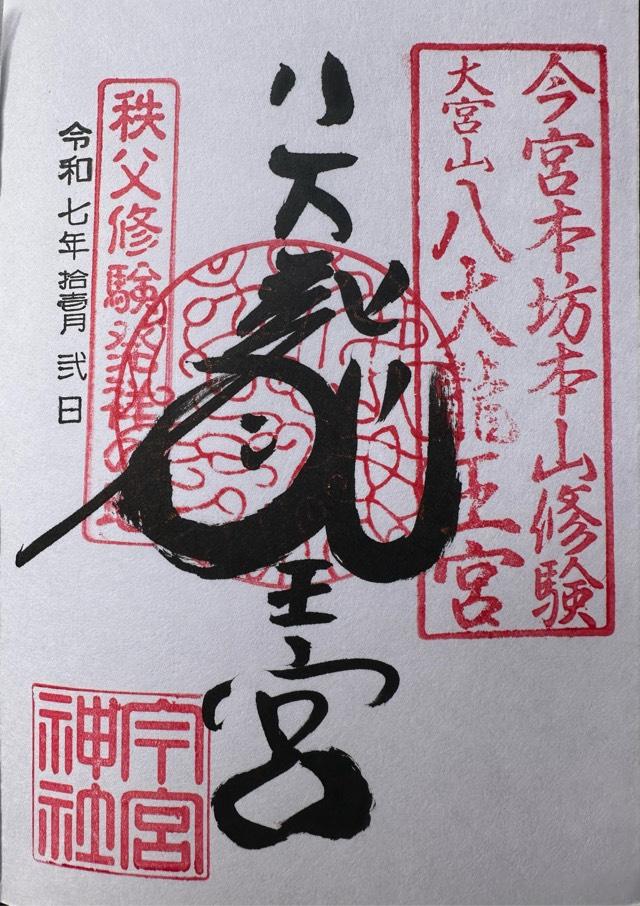 今宮本坊本山修験
大宮山八大龍王宮
八大龍王宮
秩父修験
令和七年拾壱月弐日
今宮神社